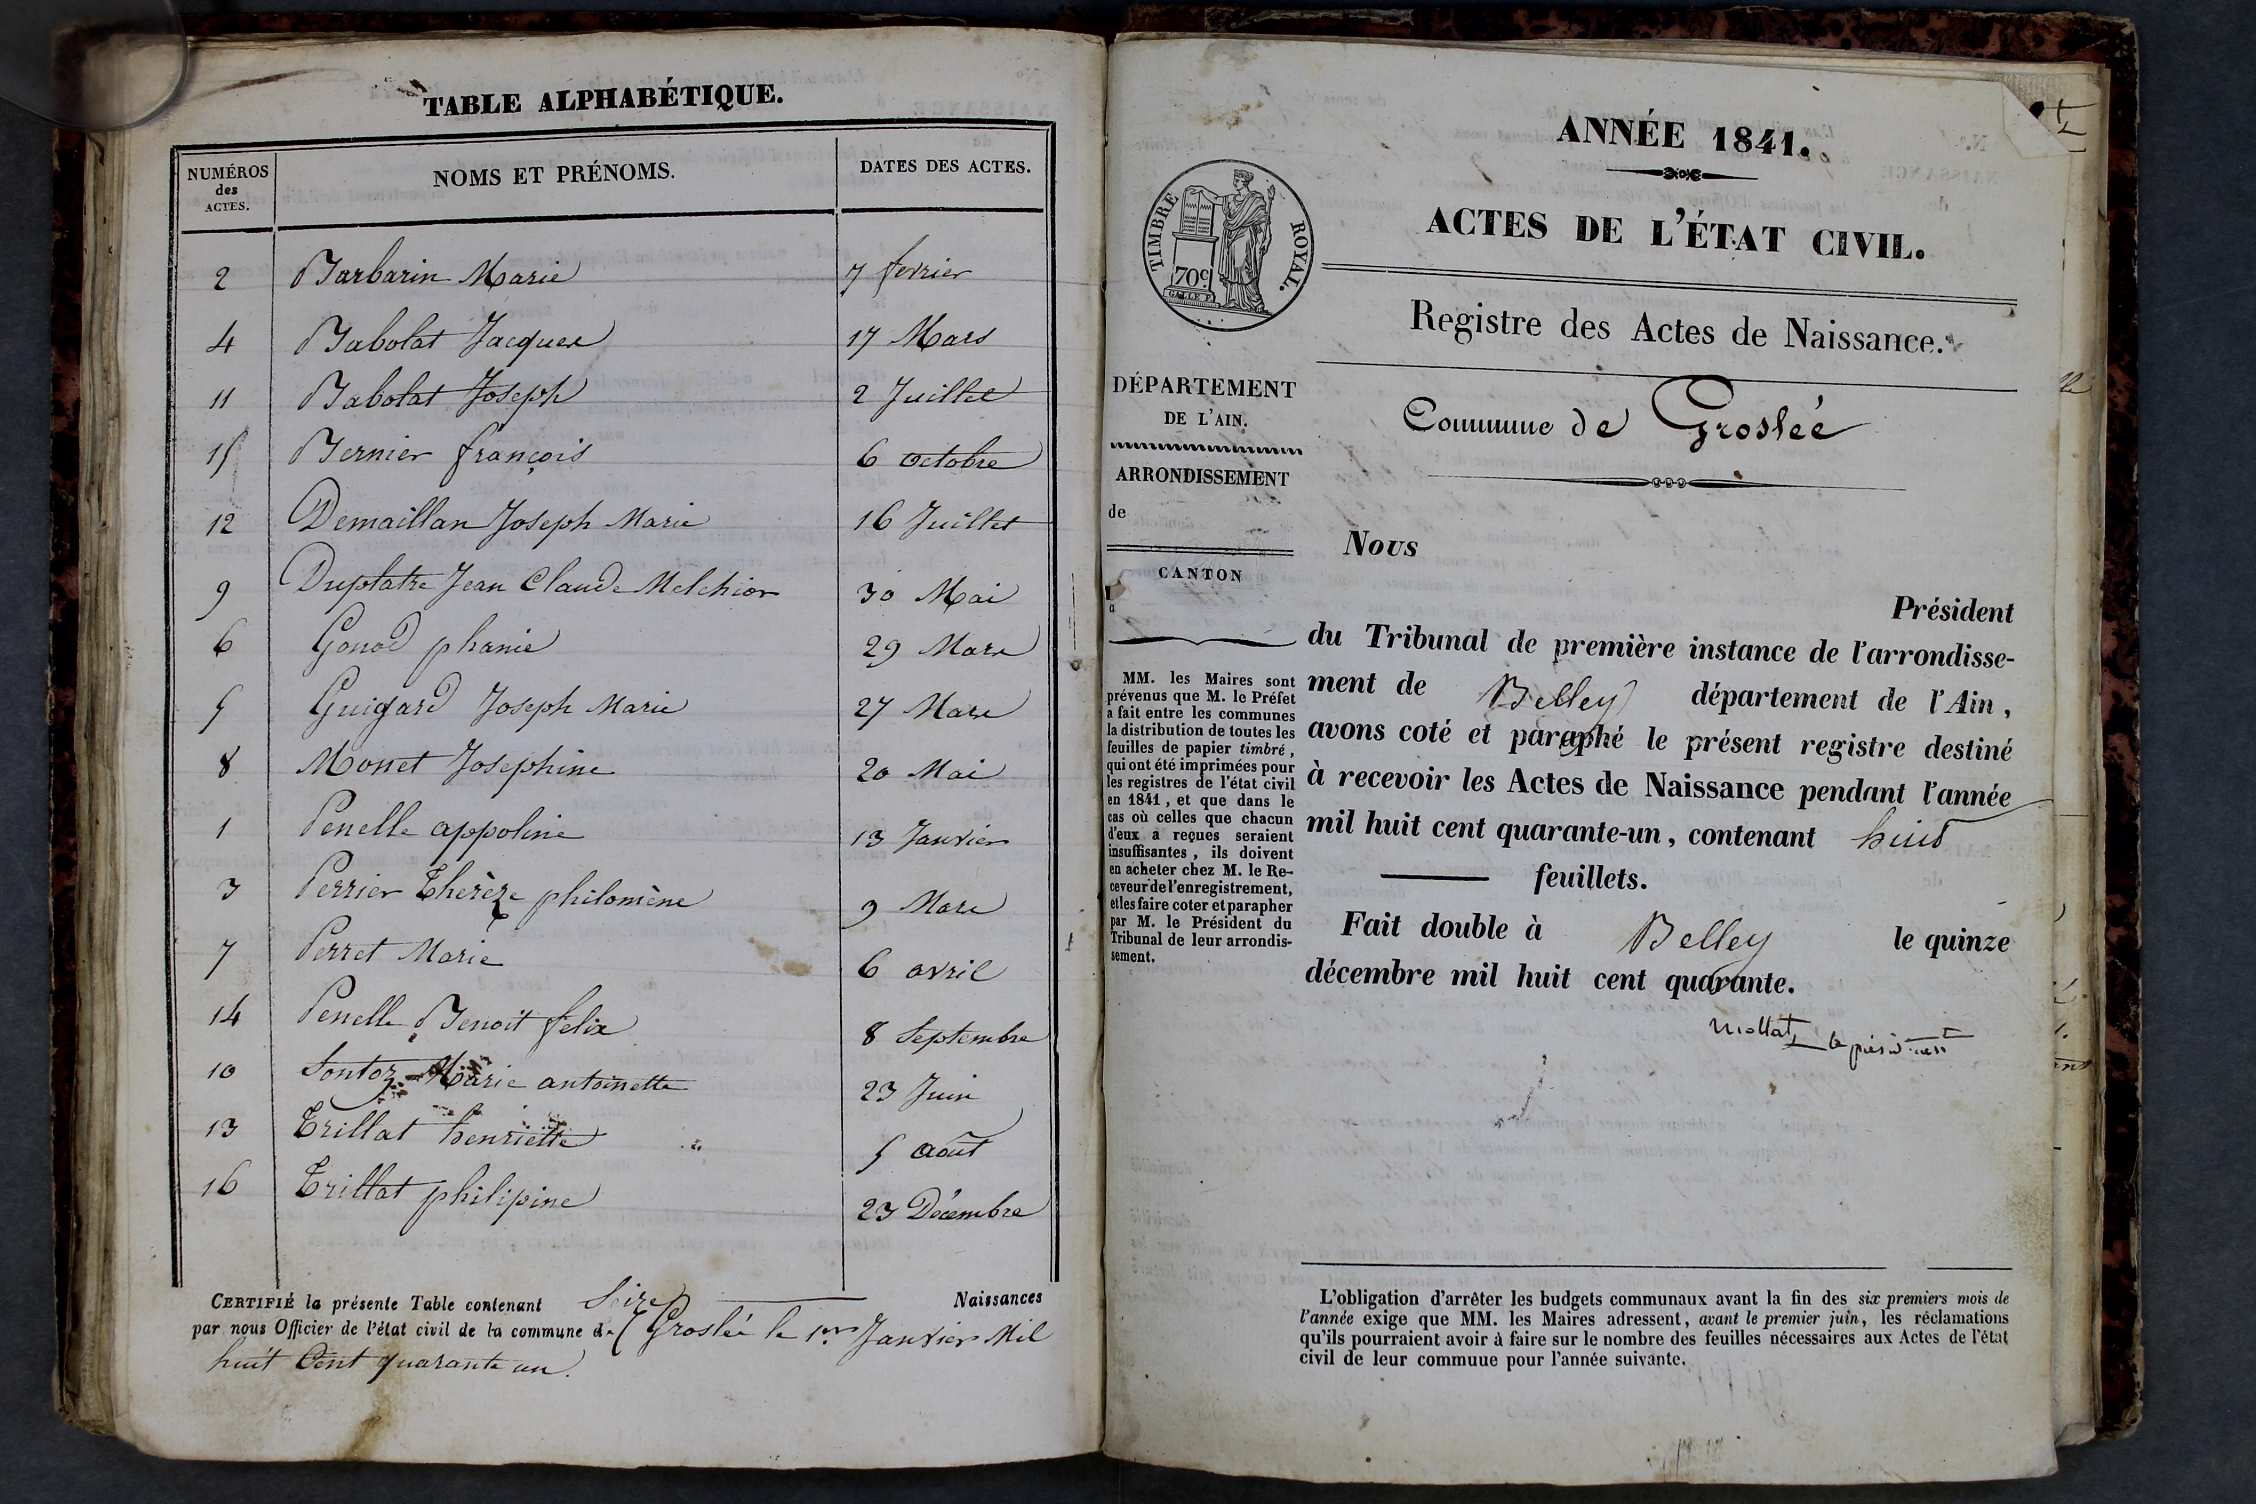 TABLE ALPHABÉTIQUE.
NUMÉROS des ACTES. NOMS ET PRÉNOMS. DATES DES ACTES.
2 Barbarin Marie 7 fevrier
4 Babolat Jacques 17 Mars
11 Babolat Joseph 2 Juillet
15 Bernier françois 6 octobre
12 Demaillan Joseph Marie 16 Juillet
9 Duplatre Jean Claude Melchior 30 Mai
6 Gonod phanie 29 Mars
5 Guigard Joseph Marie 27 Mars
8 Monet Josephine 20 Mai
1 Penelle appoline 13 Janvier
3 Perrier Therèze philomène 9 Mars
7 Perret Marie 6 avril
14 Penelle Benoit felix 8 Septembre
10 Sontoz Marie antoinette 23 Juin
13 Trillat henriette 5 août
16 Trillat philipine 23 Décembre
CERTIFIÉ la présente Table contenant Seize Naissances
par nous Officier de l'état civil de la commune de Groslée le 1er Janvier Mil
huit Cent quarante un.
ANNÉE 1841.
ACTES DE L'ÉTAT CIVIL.
TIMBRE ROYAL.
70c.
Registre des Actes de Naissance.
Commune de Groslée
DÉPARTEMENT
DE L'AIN.
ARRONDISSEMENT
de
CANTON
MM. les Maires sont
prévenus que M. le Préfet
a fait entre les communes
la distribution de toutes les
feuilles de papier timbré,
qui ont été imprimées pour
les registres de l'état civil
en 1841, et que dans le
cas où celles que chacun
d'eux a reçues seraient
insuffisantes, ils doivent
en acheter chez M. le Re-
ceveur de l'enregistrement,
et les faire coter et parapher
par M. le Président du
Tribunal de leur arrondis-
sement.
Nous
Président
du Tribunal de première instance de l'arrondisse-
ment de Belley département de l'Ain,
avons coté et paraphé le présent registre destiné
à recevoir les Actes de Naissance pendant l'année
mil huit cent quarante-un, contenant huit
feuillets.
Fait double à Belley le quinze
décembre mil huit cent quarante.
Mollat, le président
L'obligation d'arrêter les budgets communaux avant la fin des six premiers mois de
l'année exige que MM. les Maires adressent, avant le premier juin, les réclamations
qu'ils pourraient avoir à faire sur le nombre des feuilles nécessaires aux Actes de l'état
civil de leur commuue pour l'année suivante.